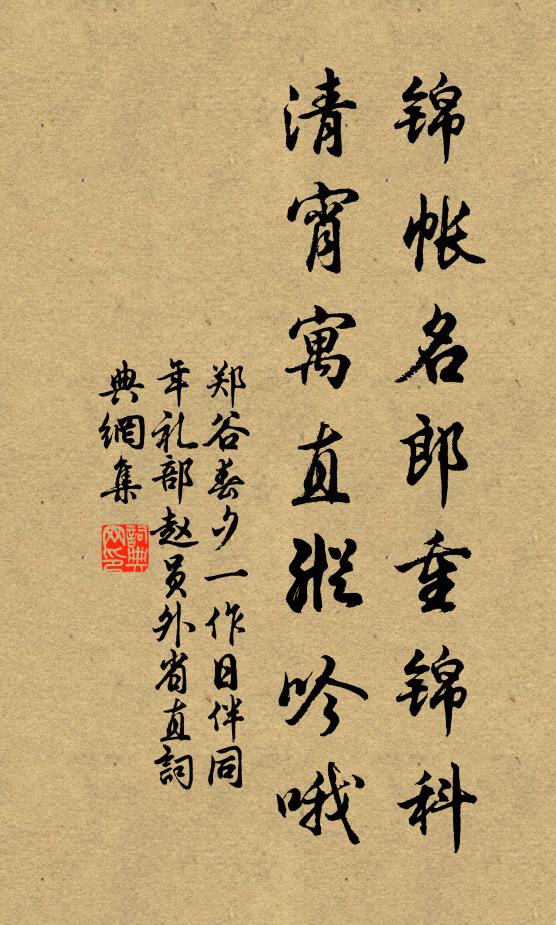 锦帐名郎重锦科
清宵寓直纵吟哦
郑谷春夕一作日伴同
年礼部赵员外省直詞
典網集
詞典
网印